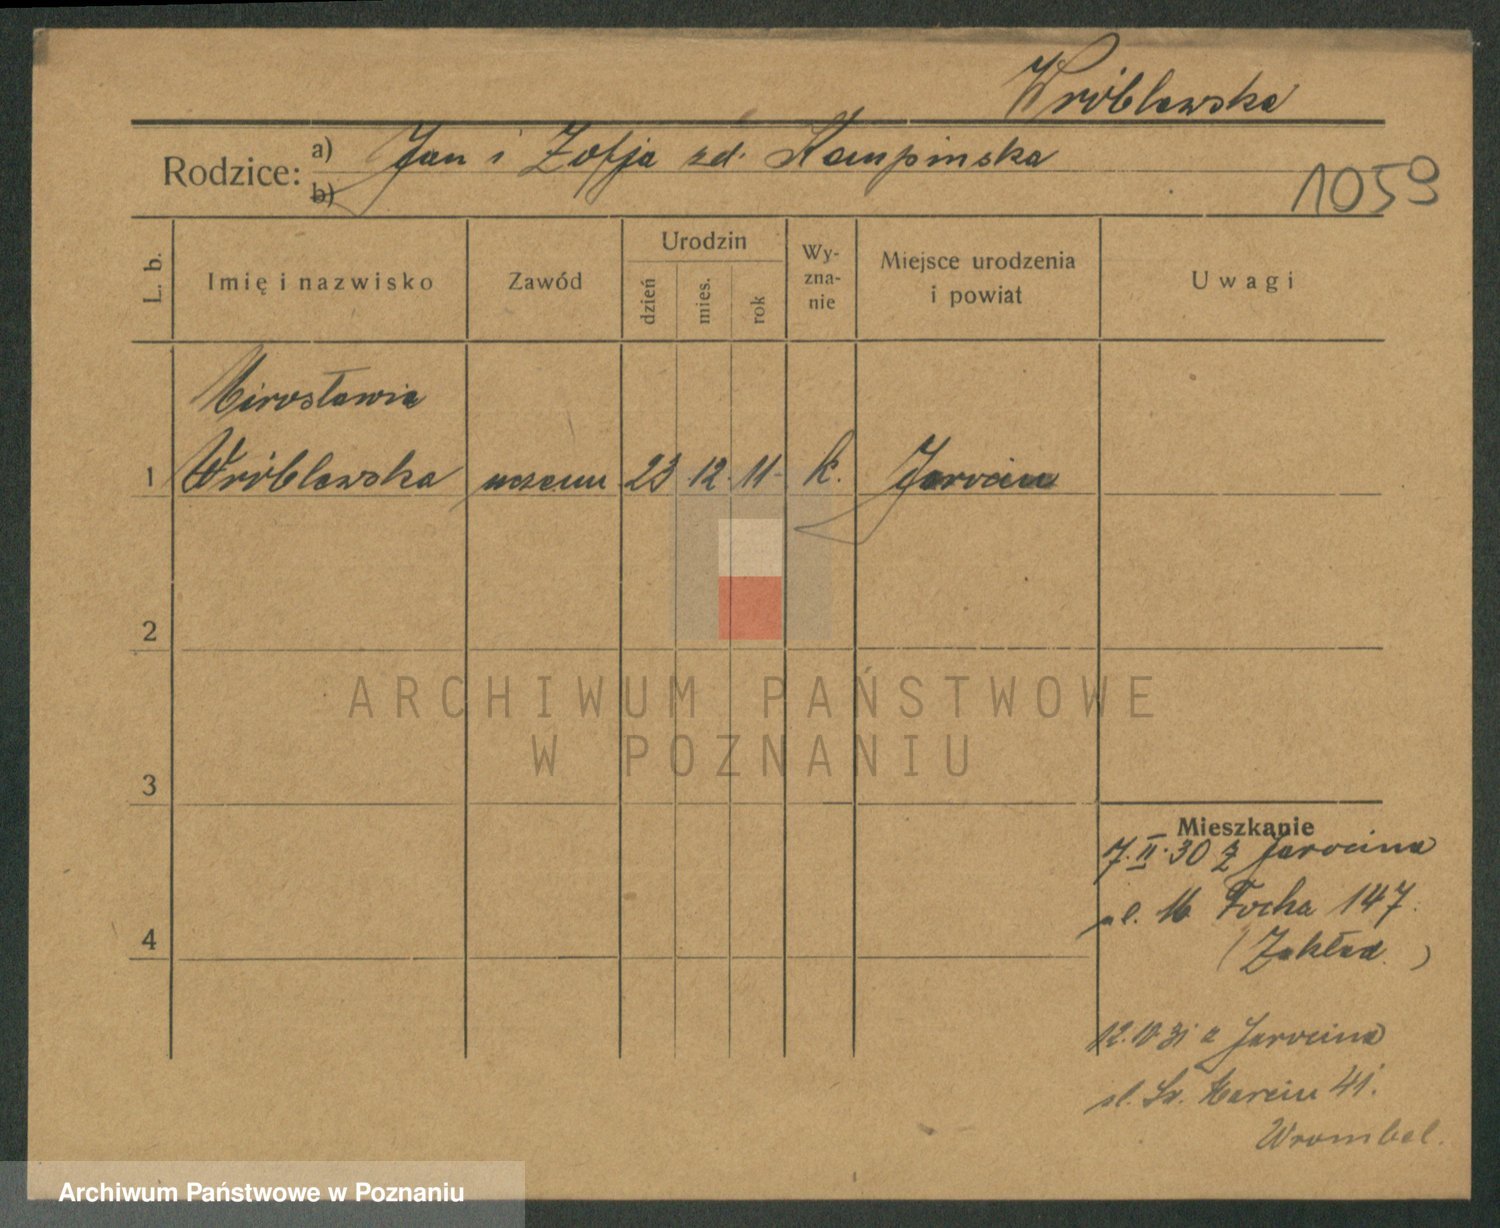 Wróblewska
Rodzice: a) Jan i Zofja zd. Kempinska
b)
1059
L. b.
Imię i nazwisko
Zawód
Urodzin
dzień
mies.
rok
Wy-
zna-
nie
Miejsce urodzenia
i powiat
Uwagi
Mirosławia
1 Wróblewska uczenn 23 12 11 k. Jarocin
2
ARCHIWUM PAŃSTWOWE
W POZNANIU
3
4
Mieszkanie
7.II.30 z Jarocina
ul. M Focha 147.
(Zakład.)
12.10 31 z Jarocina
ul. Św. Marcin 41.
Wrombel.
Archiwum Państwowe w Poznaniu